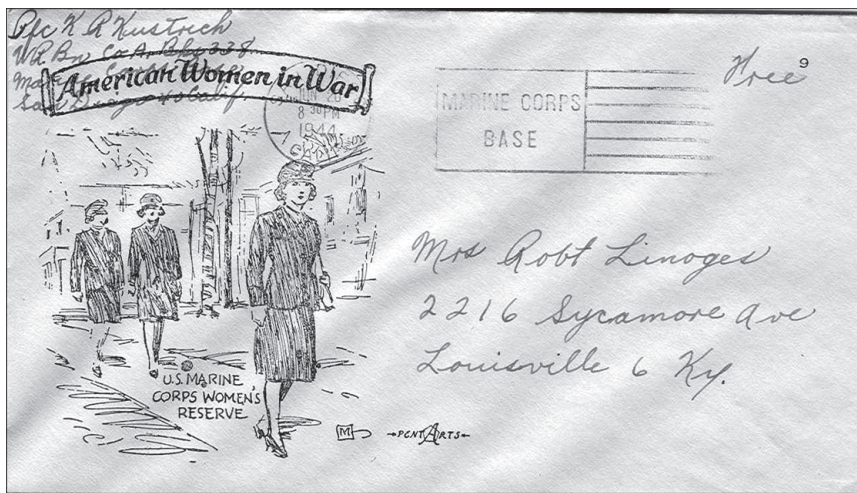 Pfc K A Kustrich
WR Bn Co A Bks 338
San Diego 40 Calif
American Women in War
8 30 PM
1944
CALIF.
MARINE CORPS
BASE
Free
9
Mrs Robt Limoges
2216 Sycamore Ave
Louisville 6 Ky.
U.S. MARINE
CORPS WOMEN'S
RESERVE
M
PENT ARTS